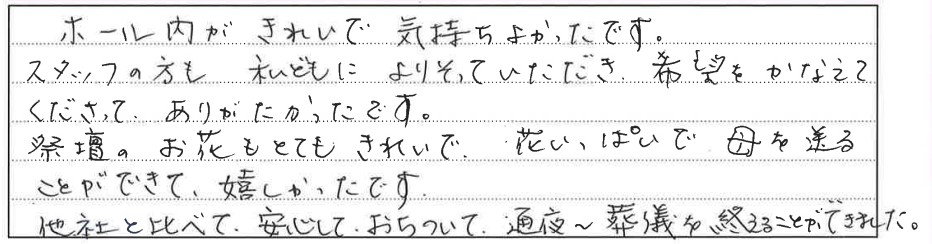 ホール内が きれいで 気持ちよかったです。
スタッフの方も 私どもに よりそっていただき、希望をかなえて
くださって、ありがたかったです。
祭壇の お花もとても きれいで、花いっぱいで 母を送る
ことができて、嬉しかったです。
他社と比べて、安心して、おちついて、通夜～葬儀を終えることができました。